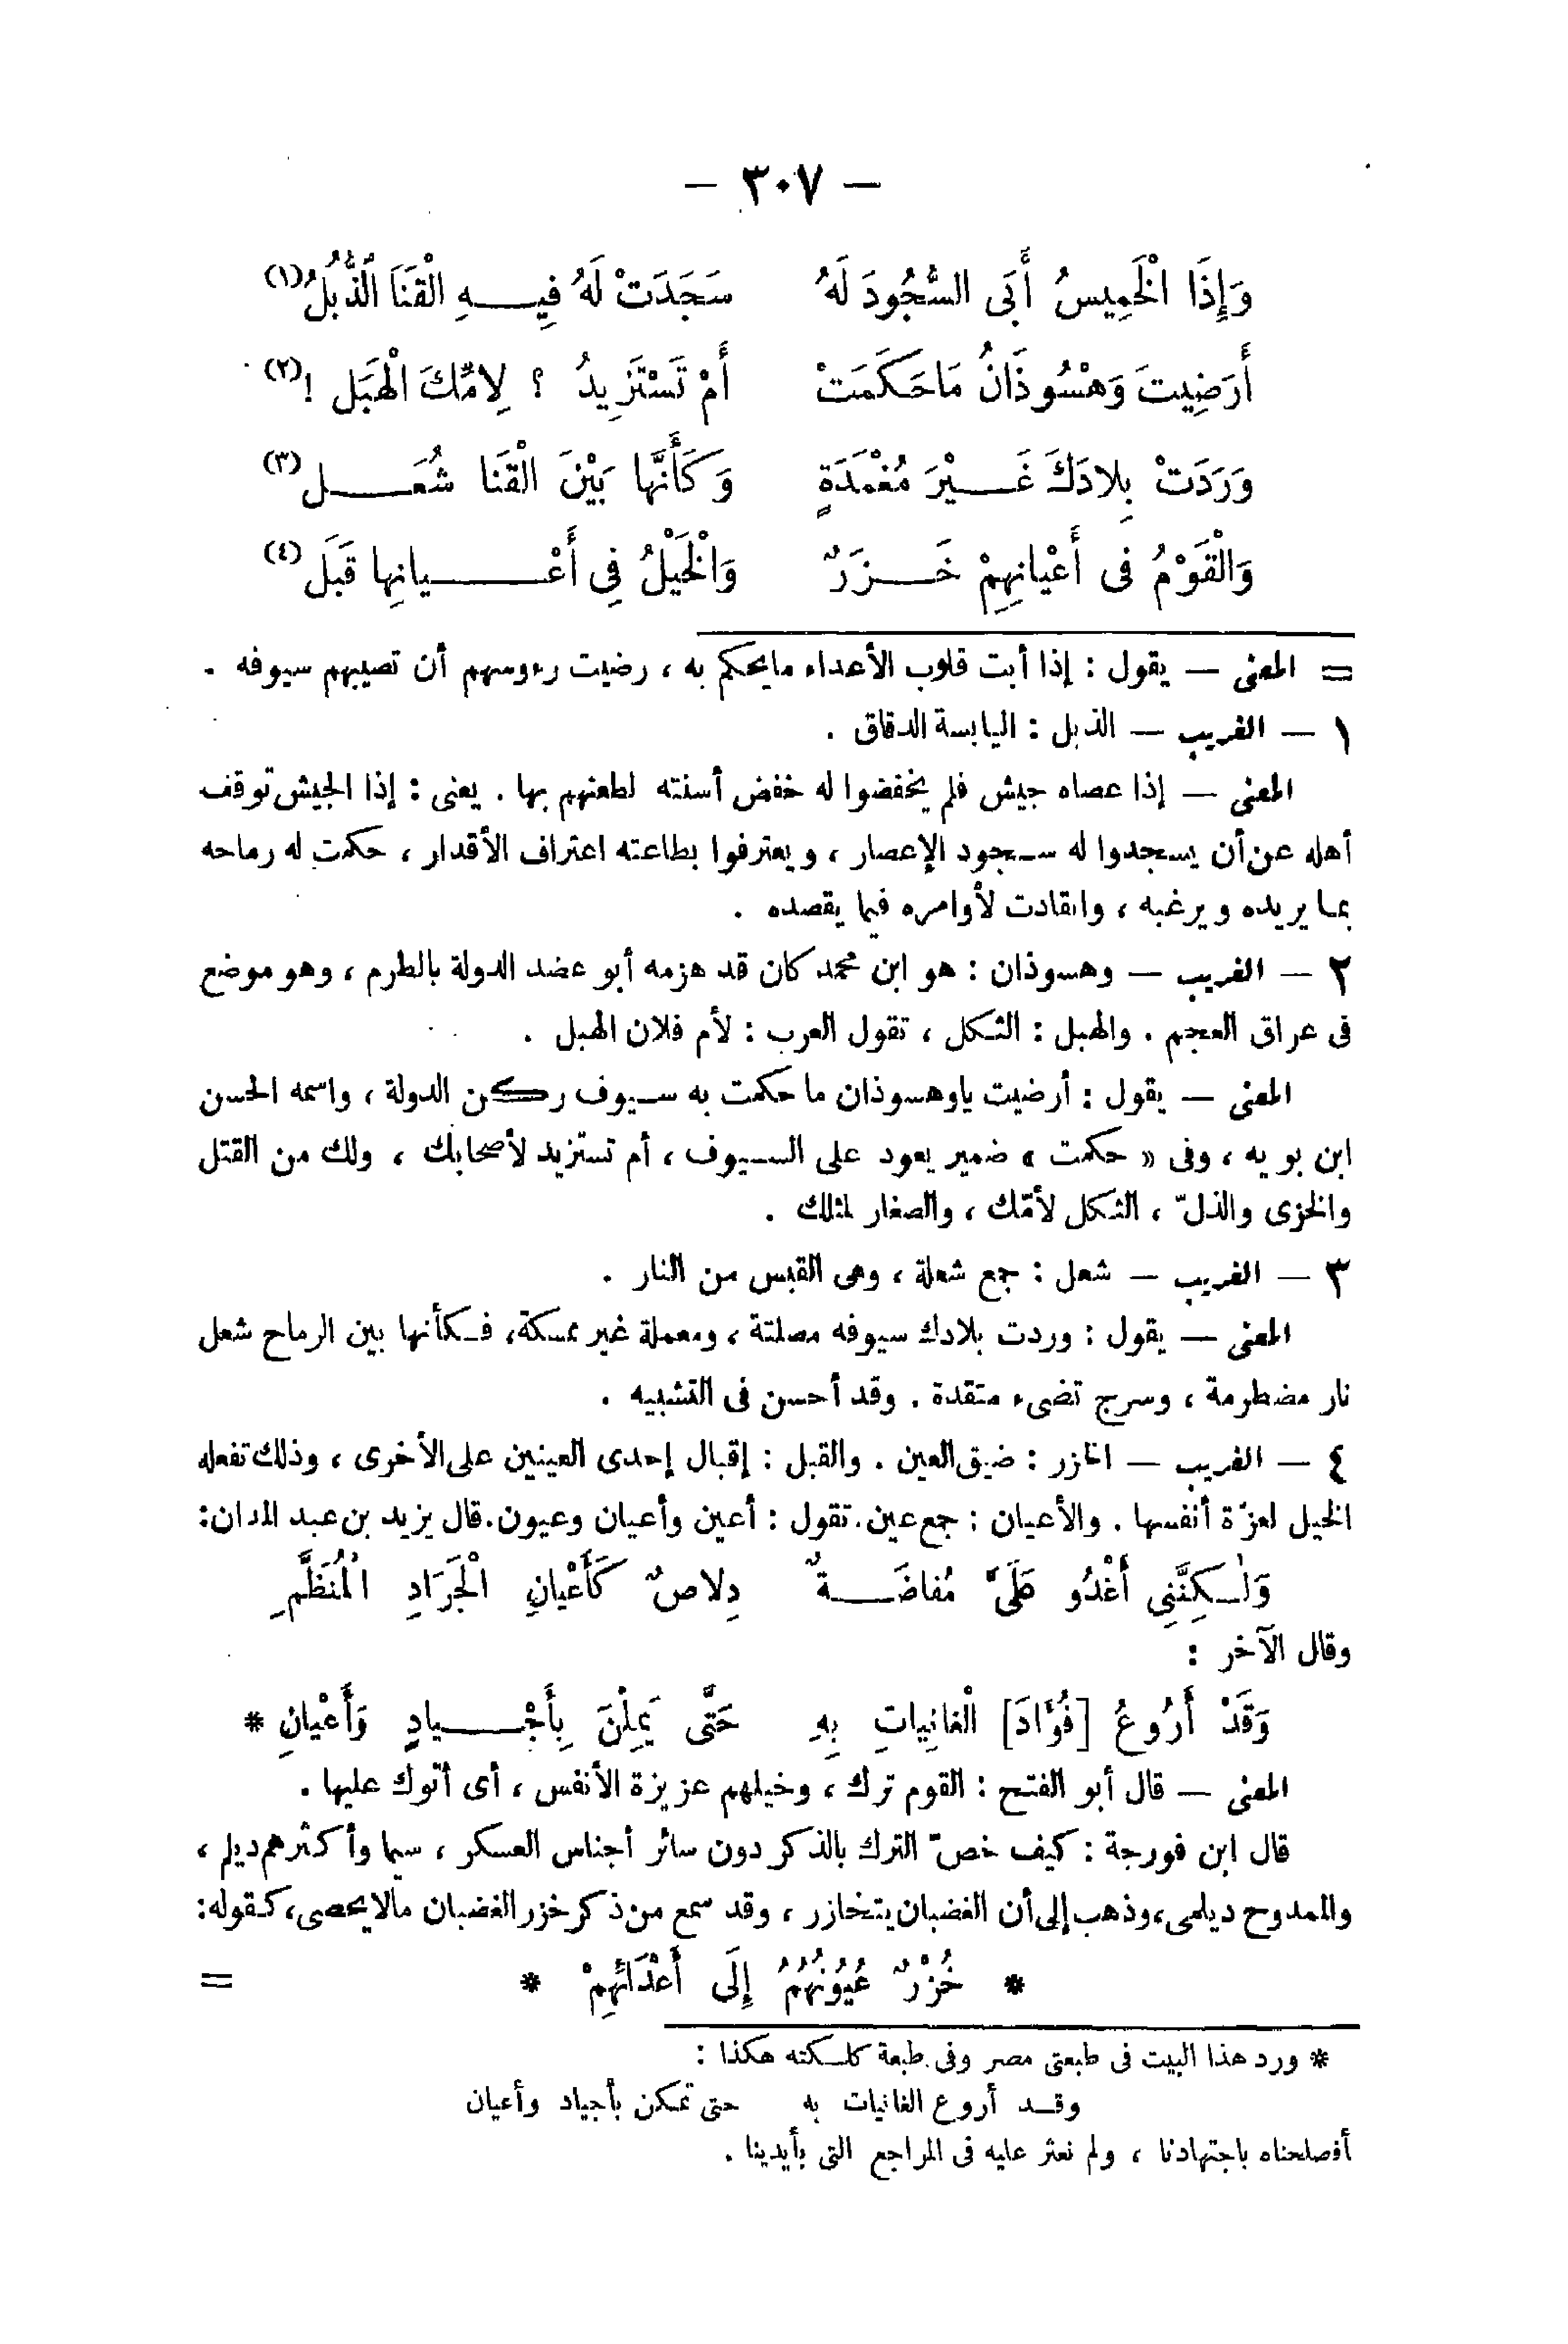 — ٣٠٧ —
وَإِذَا الْخَمِيسُ أَبَى السُّجُودَ لَهُ سَجَدَتْ لَهُ فِيـــهِ الْقَنَا الذُّبُلُ(١)
أَرَضِيتَ وَهْسُوذَانُ مَاحَكَمَتْ أَمْ تَسْتَزِيدُ ؟ لِامِّكَ الْهَبَل !(٢)
وَرَدَتْ بِلادَكَ غَـــيْرَ مُغْمَدَةٍ وَكَأَنَّها بَيْنَ الْقَنا شُعَـــل(٣)
وَالْقَوْمُ فى أَعْيانِهِمْ خَـــزَرٌ وَالْخَيْلُ فِى أَعْـــيانِها قَبَل(٤)
= المعنى — يقول : إذا أبت قلوب الأعداء مايحكم به ، رضيت رءوسهم أن تصيبهم سيوفه .
١ — الغريب — الذبل : اليابسة الدقاق .
المعنى — إذا عصاه جيش فلم يخفضوا له خفض أسنته لطعنهم بها . يعنى : إذا الجيش توقف
أهله عن أن يسجدوا له سـجود الإعصار ، ويعترفوا بطاعته اعتراف الأقدار ، حكمت له رماحه
بما يريده ويرغبه ، وانقادت لأوامره فيما يقصده .
٢ — الغريب — وهسوذان : هو ابن محمد كان قد هزمه أبو عضد الدولة بالطرم ، وهو موضع
فى عراق العجم . والهبل : الثكل ، تقول العرب : لأم فلان الهبل .
المعنى — يقول : أرضيت ياوهسوذان ما حكمت به سـيوف ركن الدولة ، واسمه الحسن
ابن بويه ، وفى « حكمت » ضمير يعود على السـيوف ، أم تستزيد لأصحابك ، ولك من القتل
والخزى والذلّ ، الثكل لأمّك ، والصغار لمثلك .
٣ — الغريب — شعل : جمع شعلة ، وهى القبس من النار .
المعنى — يقول : وردت بلادك سيوفه مصلتة ، ومعملة غير ممسكة، فـكأنها بين الرماح شعل
نار مضطرمة ، وسرج تضىء متقدة . وقد أحسن فى التشبيه .
٤ — الغريب — الخزر : ضيق العين . والقبل : إقبال إحدى العينين على الأخرى ، وذلك تفعله
الخيل لعزّة أنفسها . والأعيان : جمع عين . تقول : أعين وأعيان وعيون . قال يزيد بن عبد المدان:
وَلٰـكِنَّنِى أَغْدُو عَلَىَّ مُفاضَـــةٌ دِلاصٌ كَأَعْيانِ الْجَرَادِ الْمُنَظَّمِ
وقال الآخر :
وَقَدْ أَرُوعُ [فُؤَادَ] الْغانِياتِ بِهِ حَتَّى يَمِلْنَ بِأَجْـــيادٍ وَأَعْيانِ *
المعنى — قال أبو الفتح : القوم ترك ، وخيلهم عزيزة الأنفس ، أى أتوك عليها .
قال ابن فورجة : كيف خصّ الترك بالذكر دون سائر أجناس العسكر ، سيما وأكثرهم ديلم ،
والممدوح ديلمى، وذهب إلى أن الغضبان يتخازر ، وقد سمع من ذكر خزر الغضبان مالا يحصى، كـقوله:
* خُزْرٌ عُيُونُهُمُ إِلَى أَعْدَائِهِمْ * =
* ورد هذا البيت فى طبعتى مصر وفى طبعة كلـكته هكذا :
وقـد أروع الغانيات به حتى تمكن بأجياد وأعيان
أفصلحناه باجتهادنا ، ولم نعثر عليه فى المراجع التى بأيدينا .